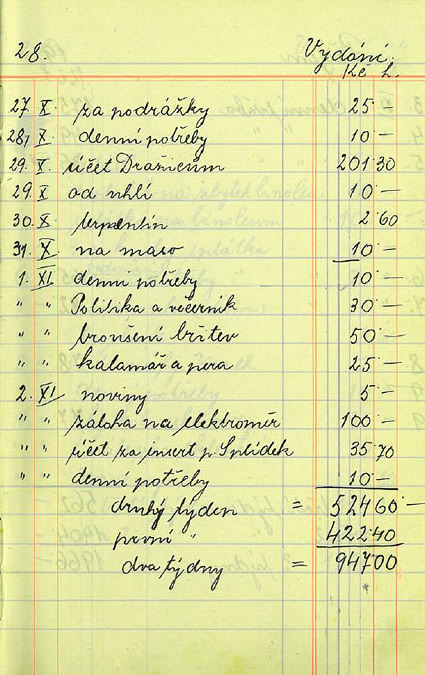 28. Vydání.
Kč h.
27 X. za podrážky 25 –
28/X. denní potřeby 10 –
29. X. účet Dražicům 201 30
29. X od uhlí 10 –
30. X. terpentin 2 60
31. X. na maso 10 –
1. XI. denní potřeby 10 –
" " Politika a večerník 30 –
" " broušení břitev 50 –
" " kalamář a pera 25 –
2. XI/ noviny 5 –
" " záloha na elektroměr 100 –
" " účet za insert p. Splídek 35 70
" " denní potřeby 10 –
druhý týden = 524 60 –
první " 422 40
dva týdny = 947 00